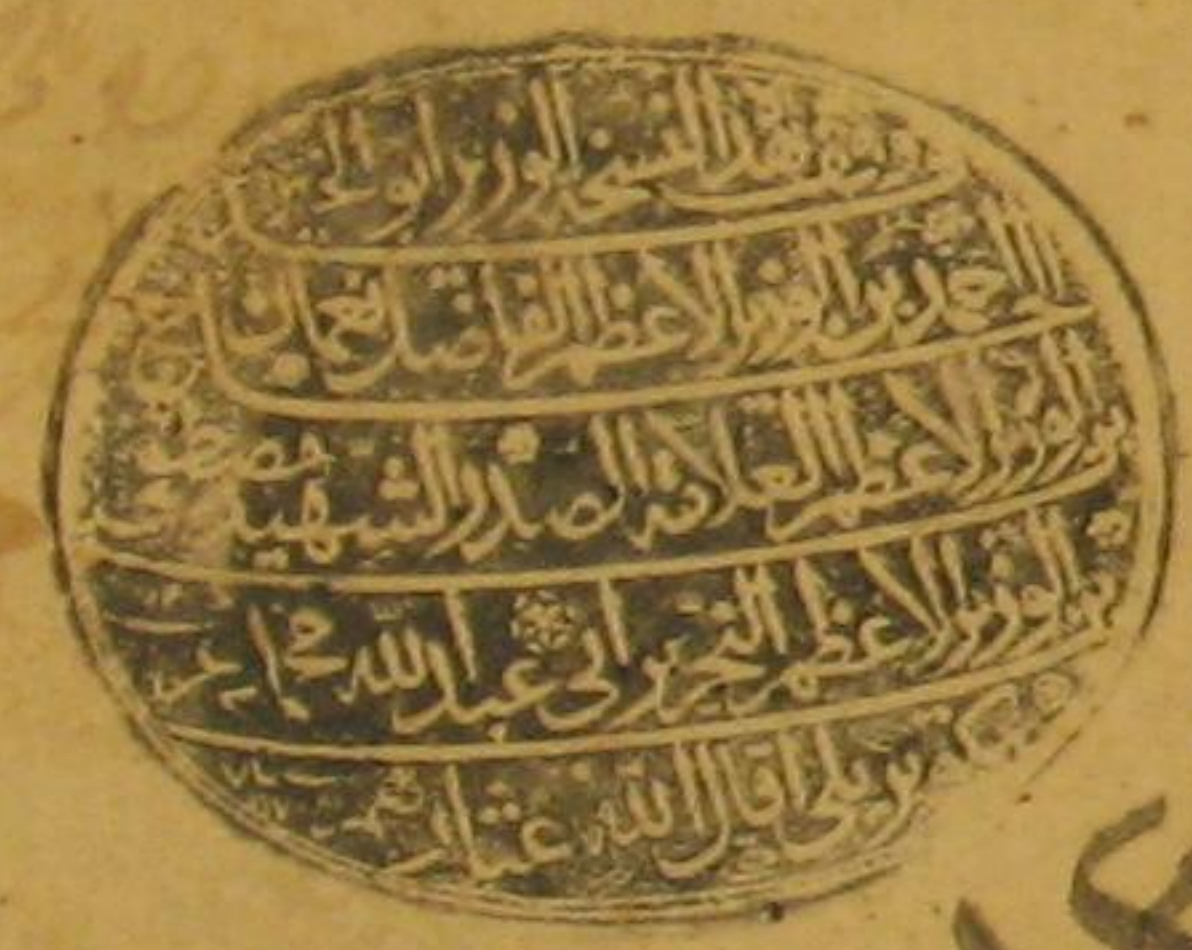 وقف هذا النسخة الوزير ابو العباس
احمد بن الوزير الاعظم الفاضل نعمان
بن الوزير الاعظم العلامة الصدر الشهيد مصطفى
بن الوزير الاعظم النحرير ابي عبد الله محمد
بكوبريلي اقال الله عثارهم